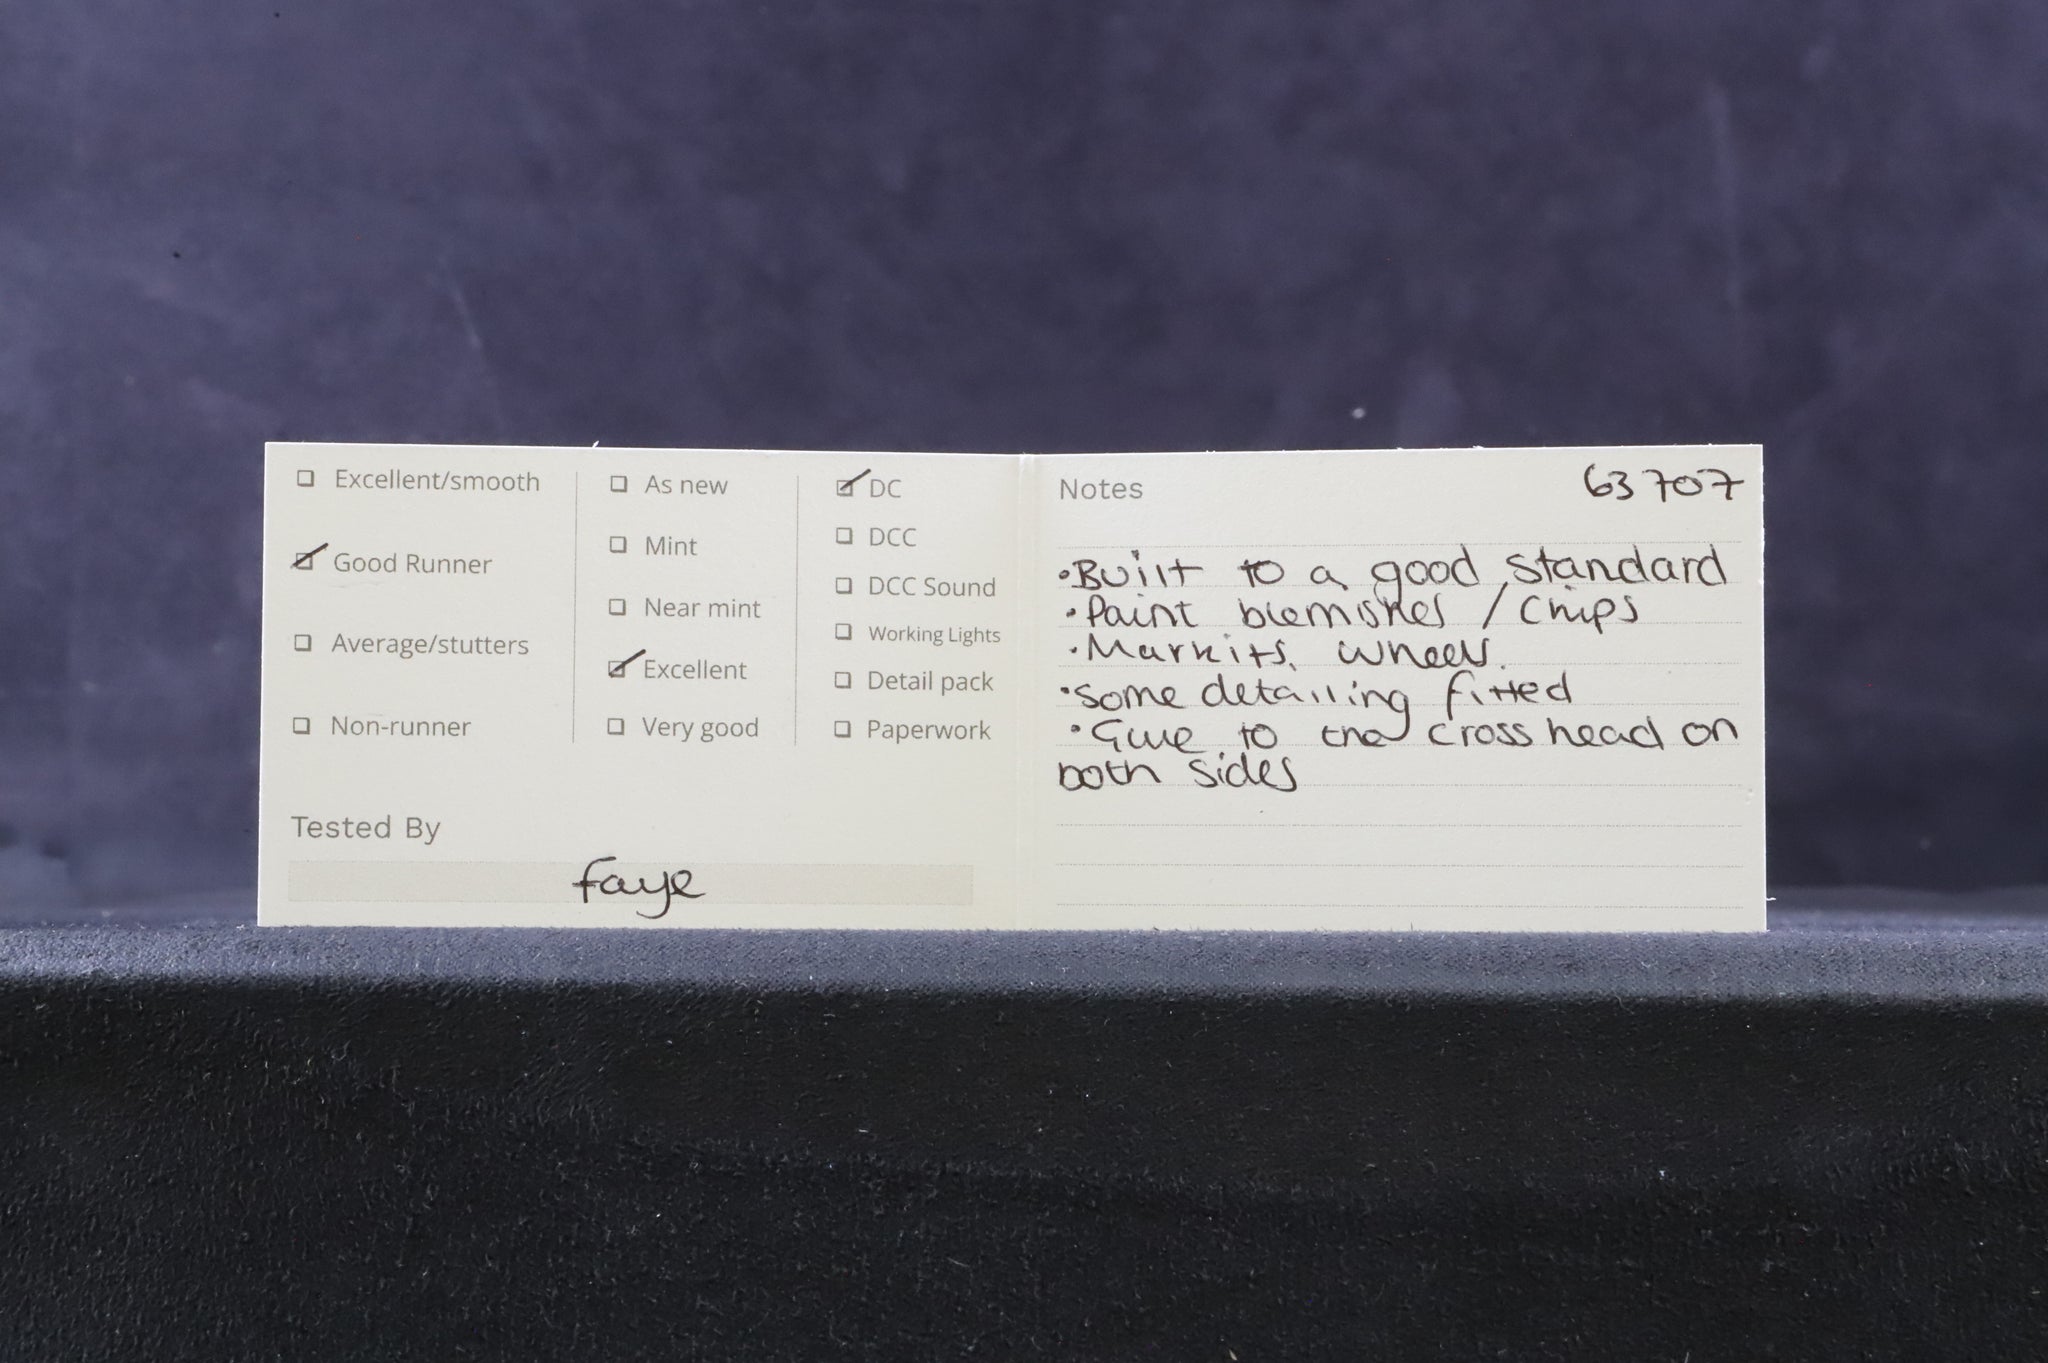 ☐ Excellent/smooth
☑ Good Runner
☐ Average/stutters
☐ Non-runner
☐ As new
☐ Mint
☐ Near mint
☑ Excellent
☐ Very good
☑ DC
☐ DCC
☐ DCC Sound
☐ Working Lights
☐ Detail pack
☐ Paperwork
Tested By
Faye
Notes
63707
• Built to a good standard
• Paint blemishes / Chips
• Markits. wheels.
• Some detailing fitted
• Glue to the cross head on
both sides